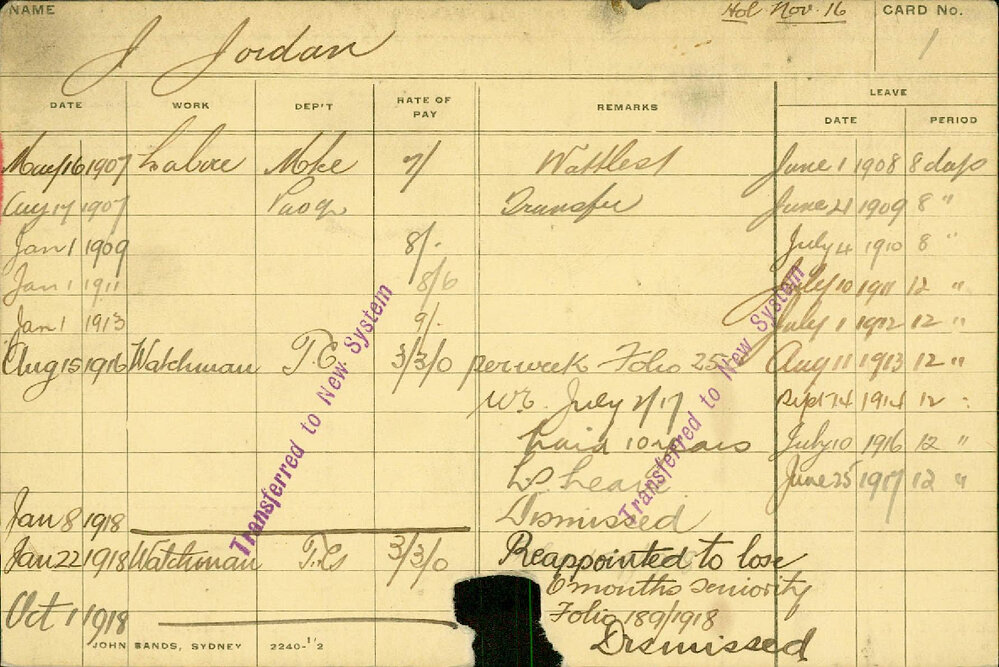 NAME Hol. Nov. 16 CARD No.
J Jordan 1
DATE WORK DEP'T RATE OF PAY REMARKS LEAVE
DATE PERIOD
May 16 1907 Labor 7/ June 1 1908 8 days
Aug 17 1907 Transfer June 21 1909 8 "
Jan 1 1909 8/- July 4 1910 8 "
Jan 1 1911 8/6 July 10 1911 12 "
Jan 1 1913 9/- July 1 1912 12 "
Aug 15 1916 Watchman 3/3/0 per week Folio Aug 11 1913 12 "
July 2/17 Sept 14 1914 12 "
10 years July 10 1916 12 "
June 25 1917 12 "
Jan 8 1918 Dismissed
Jan 22 1918 Watchman 3/3/0 Reappointed to lose
6 months seniority
Folio 189/1918
Oct 1 1918 Dismissed
Transferred to New System
Transferred to New System
JOHN SANDS, SYDNEY 2240-1/2